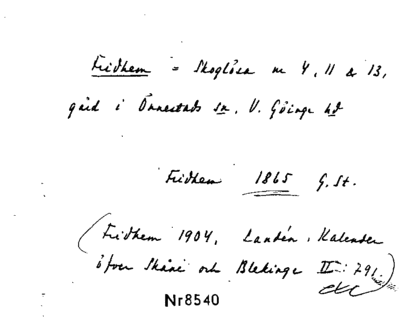 Fridhem = Skoglösa nr 4, 11 & 13,
gård i Önnestads sn, V. Göinge hd
Fridhem 1865 G.St.
(Fridhem 1904, Landén, Kalender
öfver Skåne och Blekinge II: 791.)
Nr8540